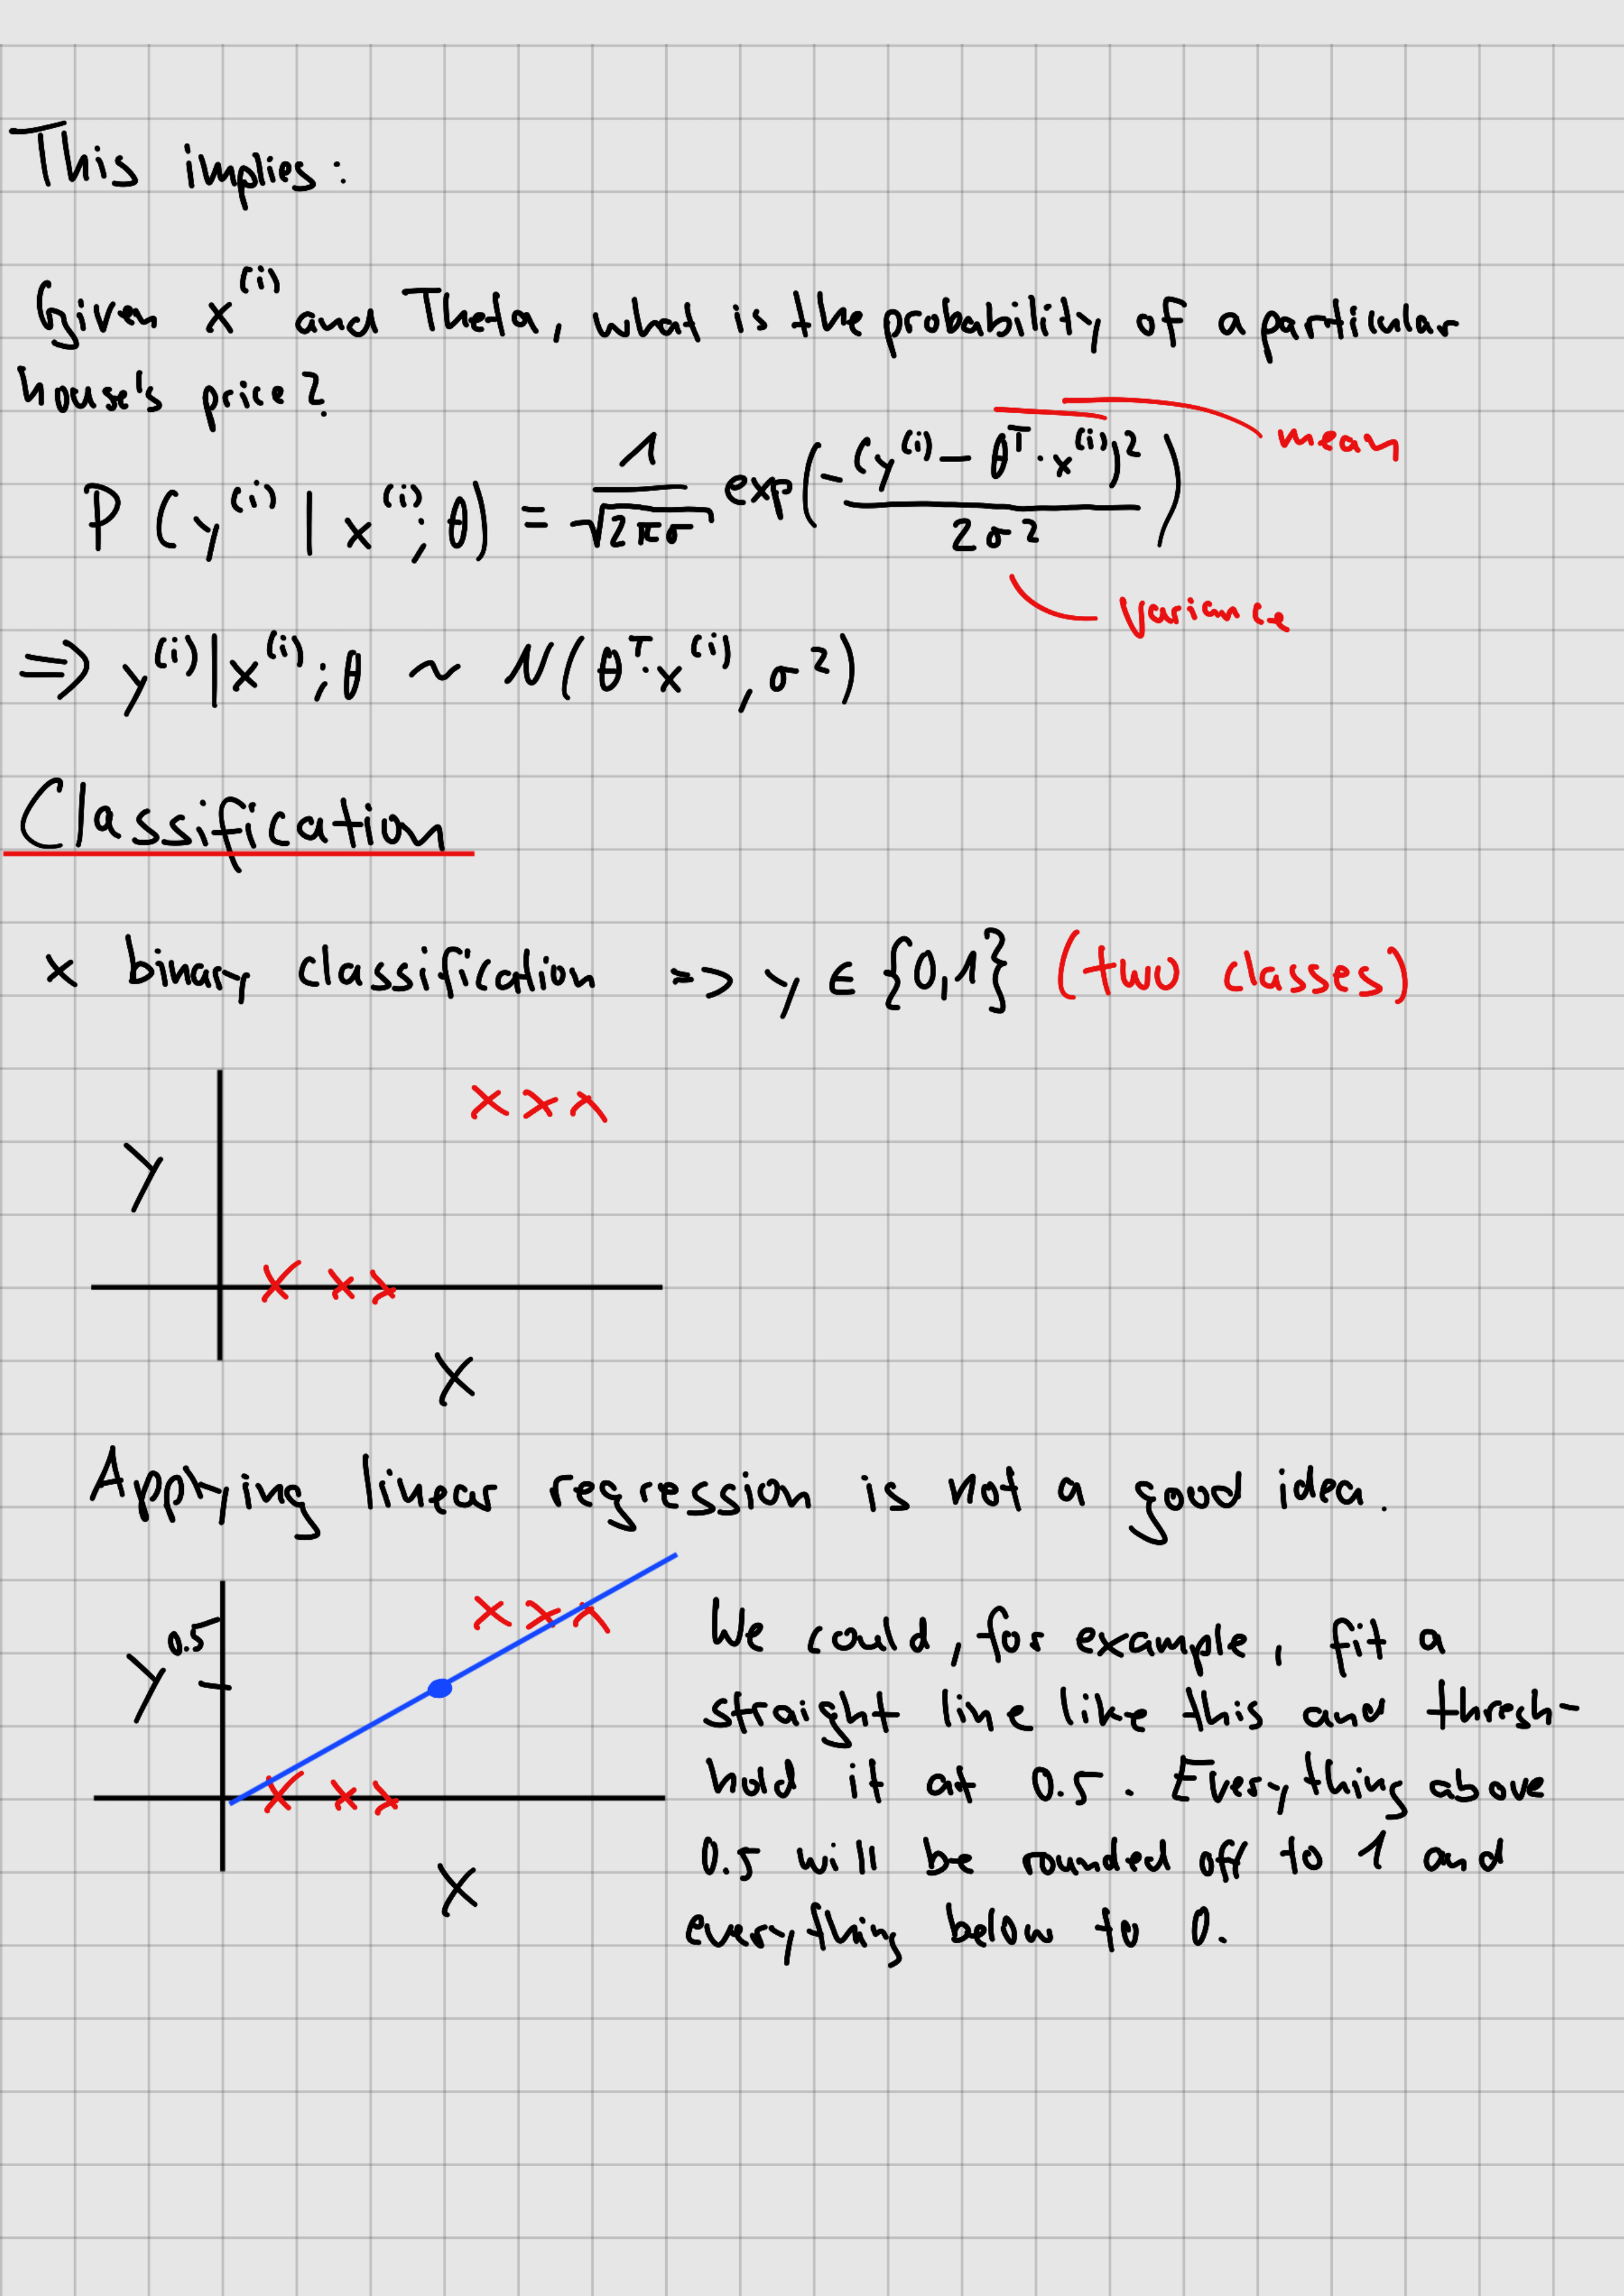 This implies:
Given x^(i) and Theta, what is the probability of a particular
house's price?
P(y^(i) | x^(i); θ) = 1/√(2πσ) exp(-(y^(i) - θ^T · x^(i))^2 / 2σ^2)
mean
variance
=> y^(i) | x^(i); θ ~ N(θ^T · x^(i), σ^2)
Classification
x binary classification => y ∈ {0,1} (two classes)
y
x
Applying linear regression is not a good idea.
0.5
y
x
We could, for example, fit a
straight line like this and thresh-
hold it at 0.5. Everything above
0.5 will be rounded off to 1 and
everything below to 0.